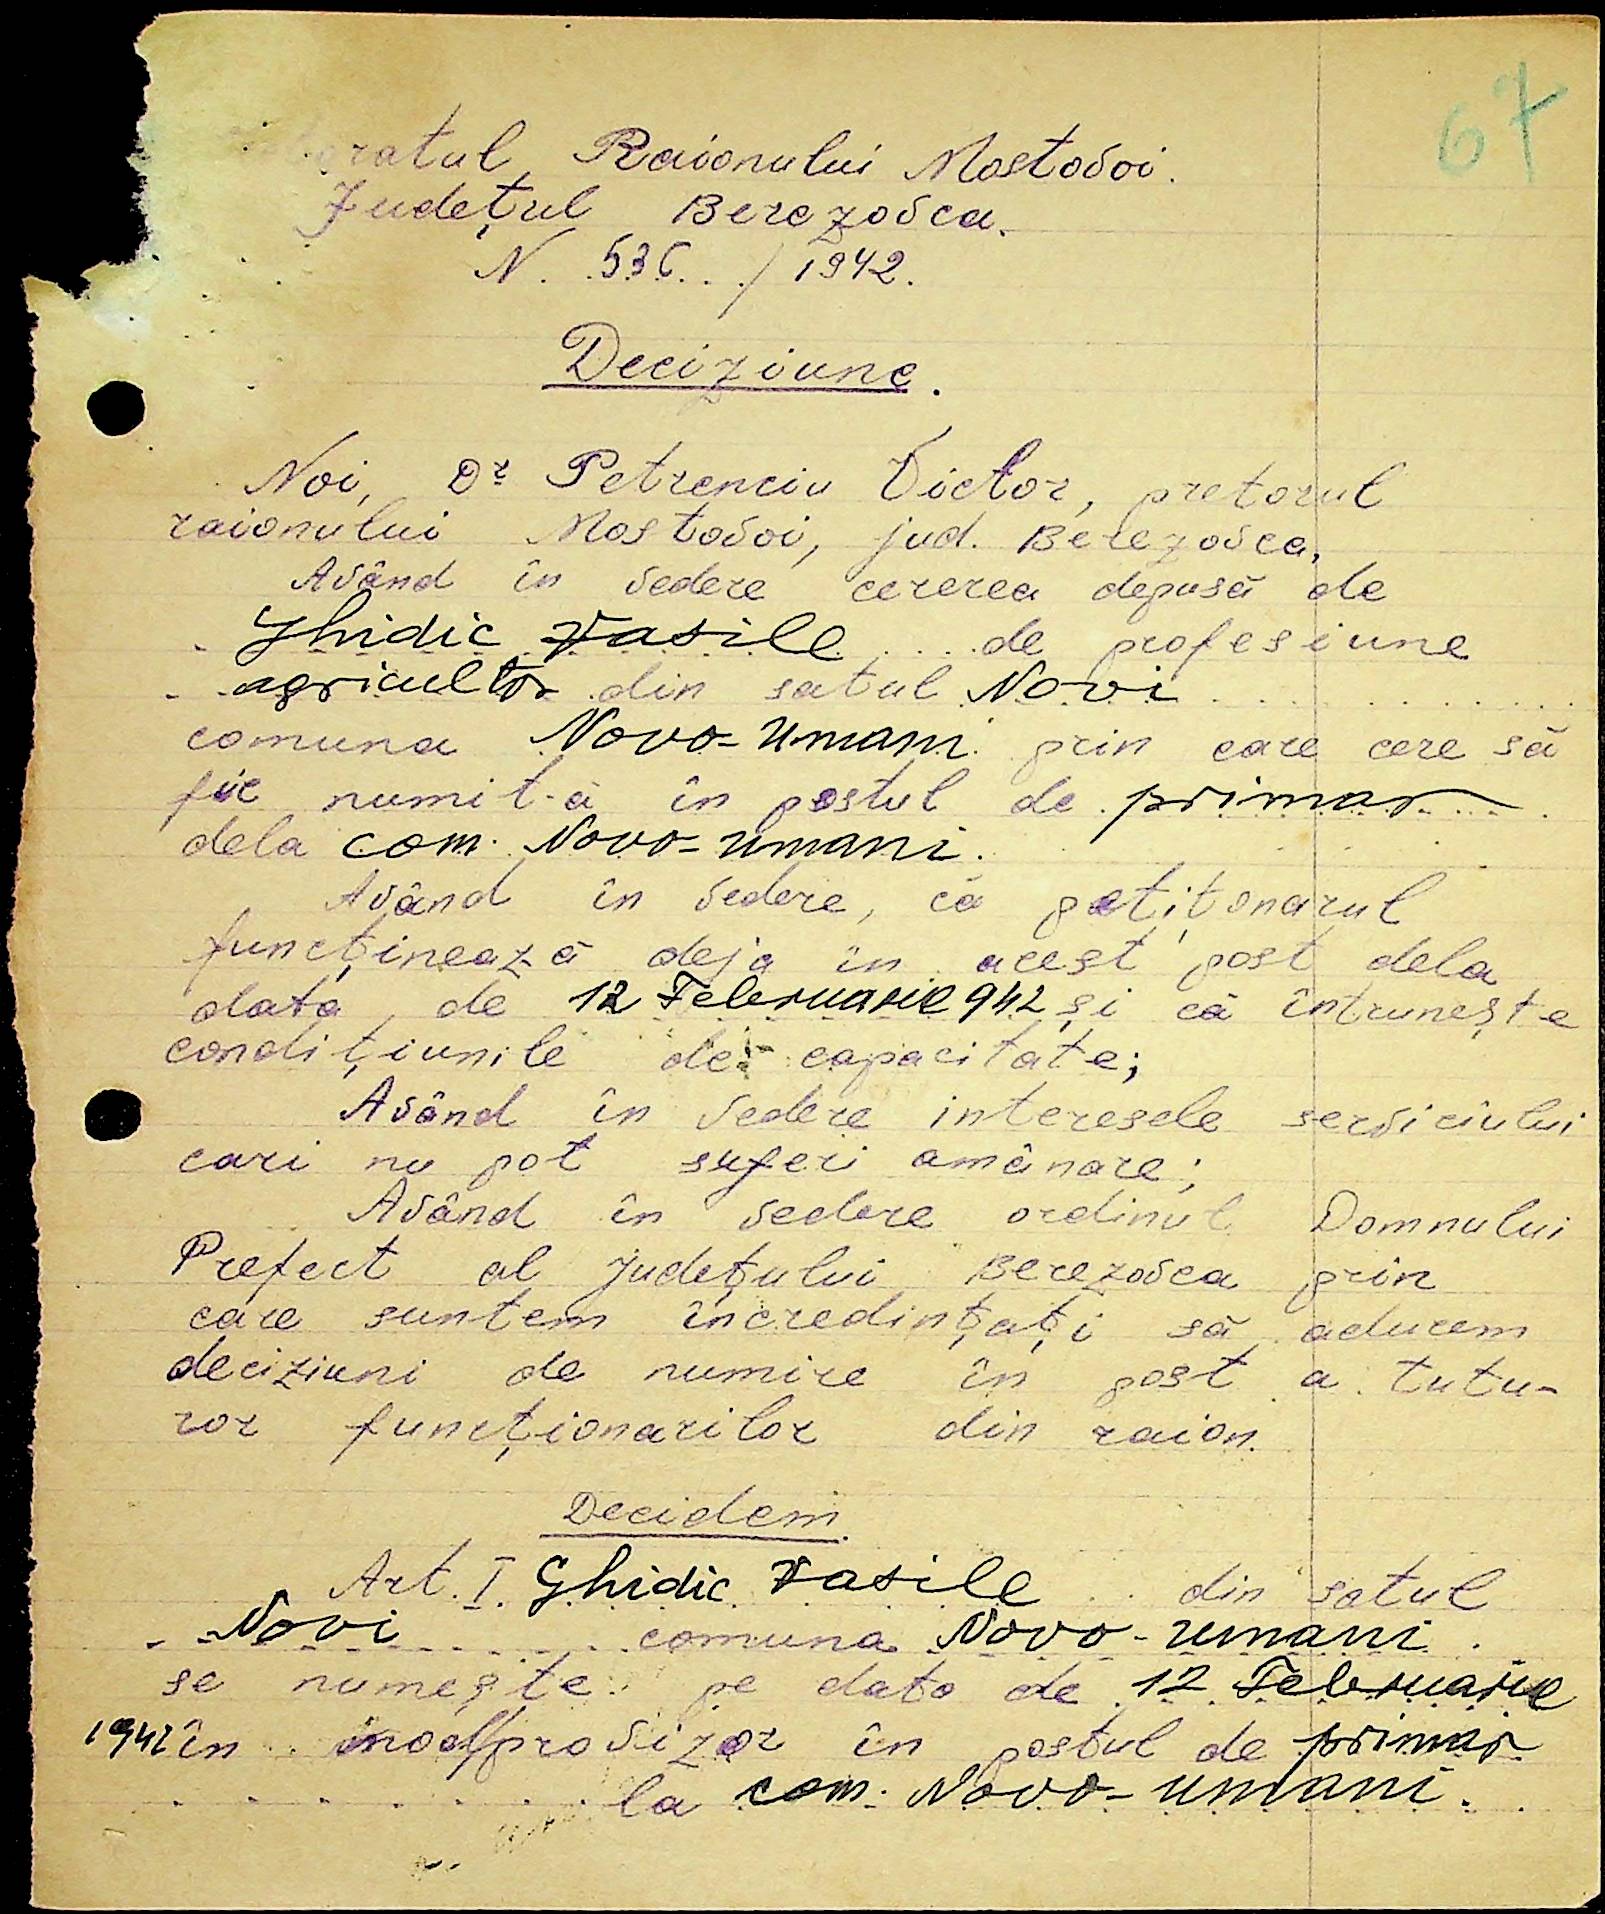 67
Raionului Mostovoi.
Județul Berezovca.
N. 536 / 1942.
Deciziune.
Noi, Dr Petrenciu Victor, pretorul
raionului Mostovoi, jud. Berezovca,
Având în vedere cererea depusă de
Ghidic Vasile de profesiune
agricultor din satul Novi
comuna Novo-Umani prin care cere să
fie numit-ă în postul de primar
dela com. Novo-Umani.
Având în vedere, că petițonarul
funcținează deja în acest post dela
data de 12 Februarie 942 și că întrunește
condițiunile de capacitate;
Având în vedere interesele serviciului
cari nu pot suferi amânare;
Având în vedere ordinul Domnului
Prefect al județului Berezovca prin
care suntem încredințați să aducem
deciziuni de numire în post a tutu-
ror funcționarilor din raion.
Decidem
Art. I. Ghidic Vasile din satul
Novi comuna Novo-Umani.
se numește pe data de 12 Februarie
1942 în mod provizor în postul de primar
la com. Novo-Umani.